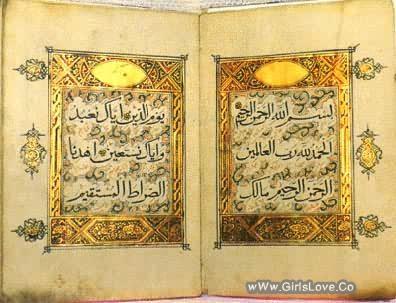 بسم الله الرحمن الرحيم
الحمد لله رب العالمين
الرحمن الرحيم مالك
يوم الدين اياك نعبد
واياك نستعين اهدنا
الصراط المستقيم
www.GirlsLove.Co